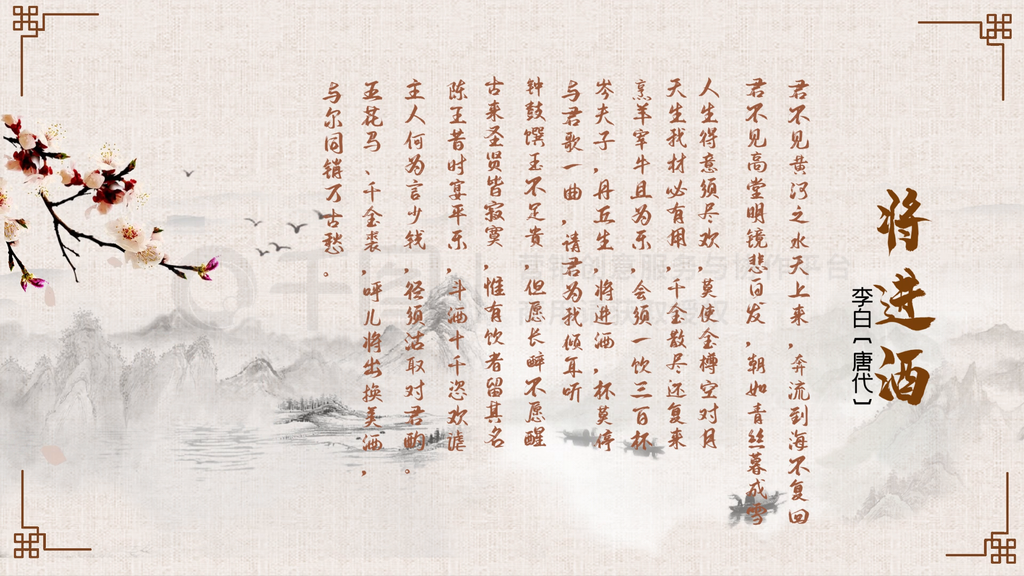 将进酒
李白【唐代】
君不见黄河之水天上来，奔流到海不复回
君不见高堂明镜悲白发，朝如青丝暮成雪
人生得意须尽欢，莫使金樽空对月
天生我材必有用，千金散尽还复来
烹羊宰牛且为乐，会须一饮三百杯
岑夫子，丹丘生，将进酒，杯莫停
与君歌一曲，请君为我倾耳听
钟鼓馔玉不足贵，但愿长醉不愿醒
古来圣贤皆寂寞，惟有饮者留其名
陈王昔时宴平乐，斗酒十千恣欢谑
主人何为言少钱，径须沽取对君酌。
五花马、千金裘，呼儿将出换美酒，
与尔同销万古愁。
千图
营销创意服务与协作平台
商用请获取授权